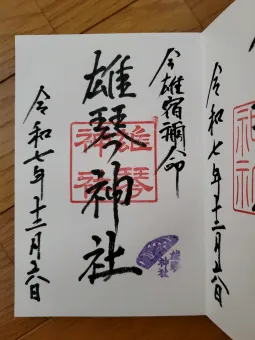 神社
令和七年十二月六日
今雄宿禰命
雄琴神社
雄琴
神社
雄琴
神社
令和七年十二月六日